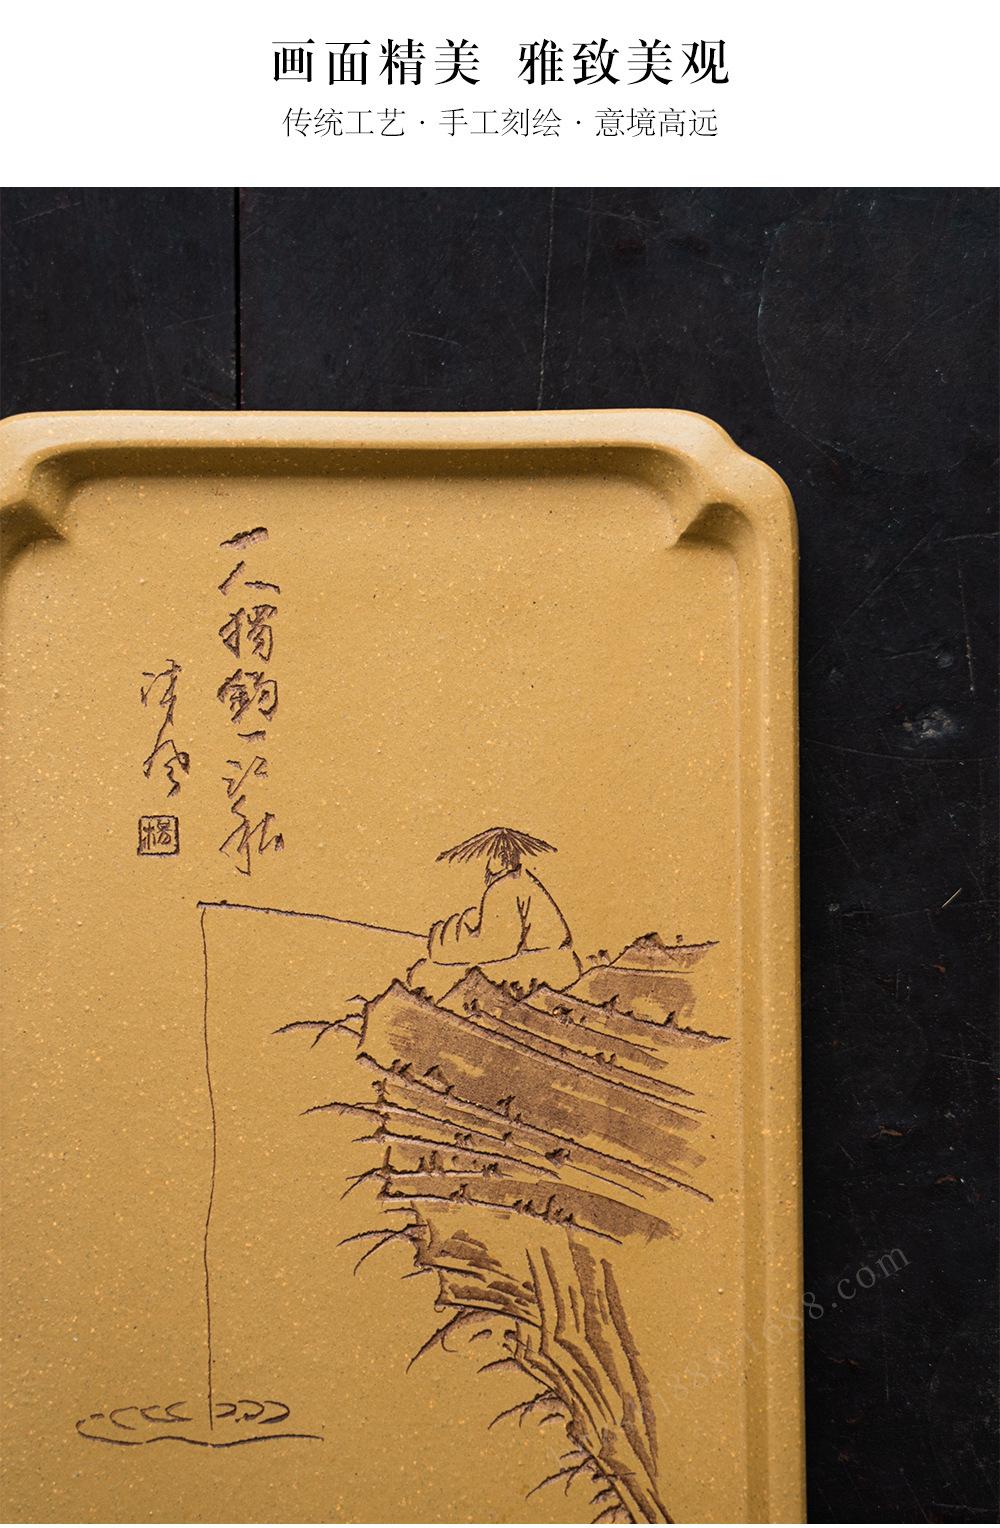 画面精美 雅致美观
传统工艺·手工刻绘·意境高远
一人獨釣一江秋
清風
楊